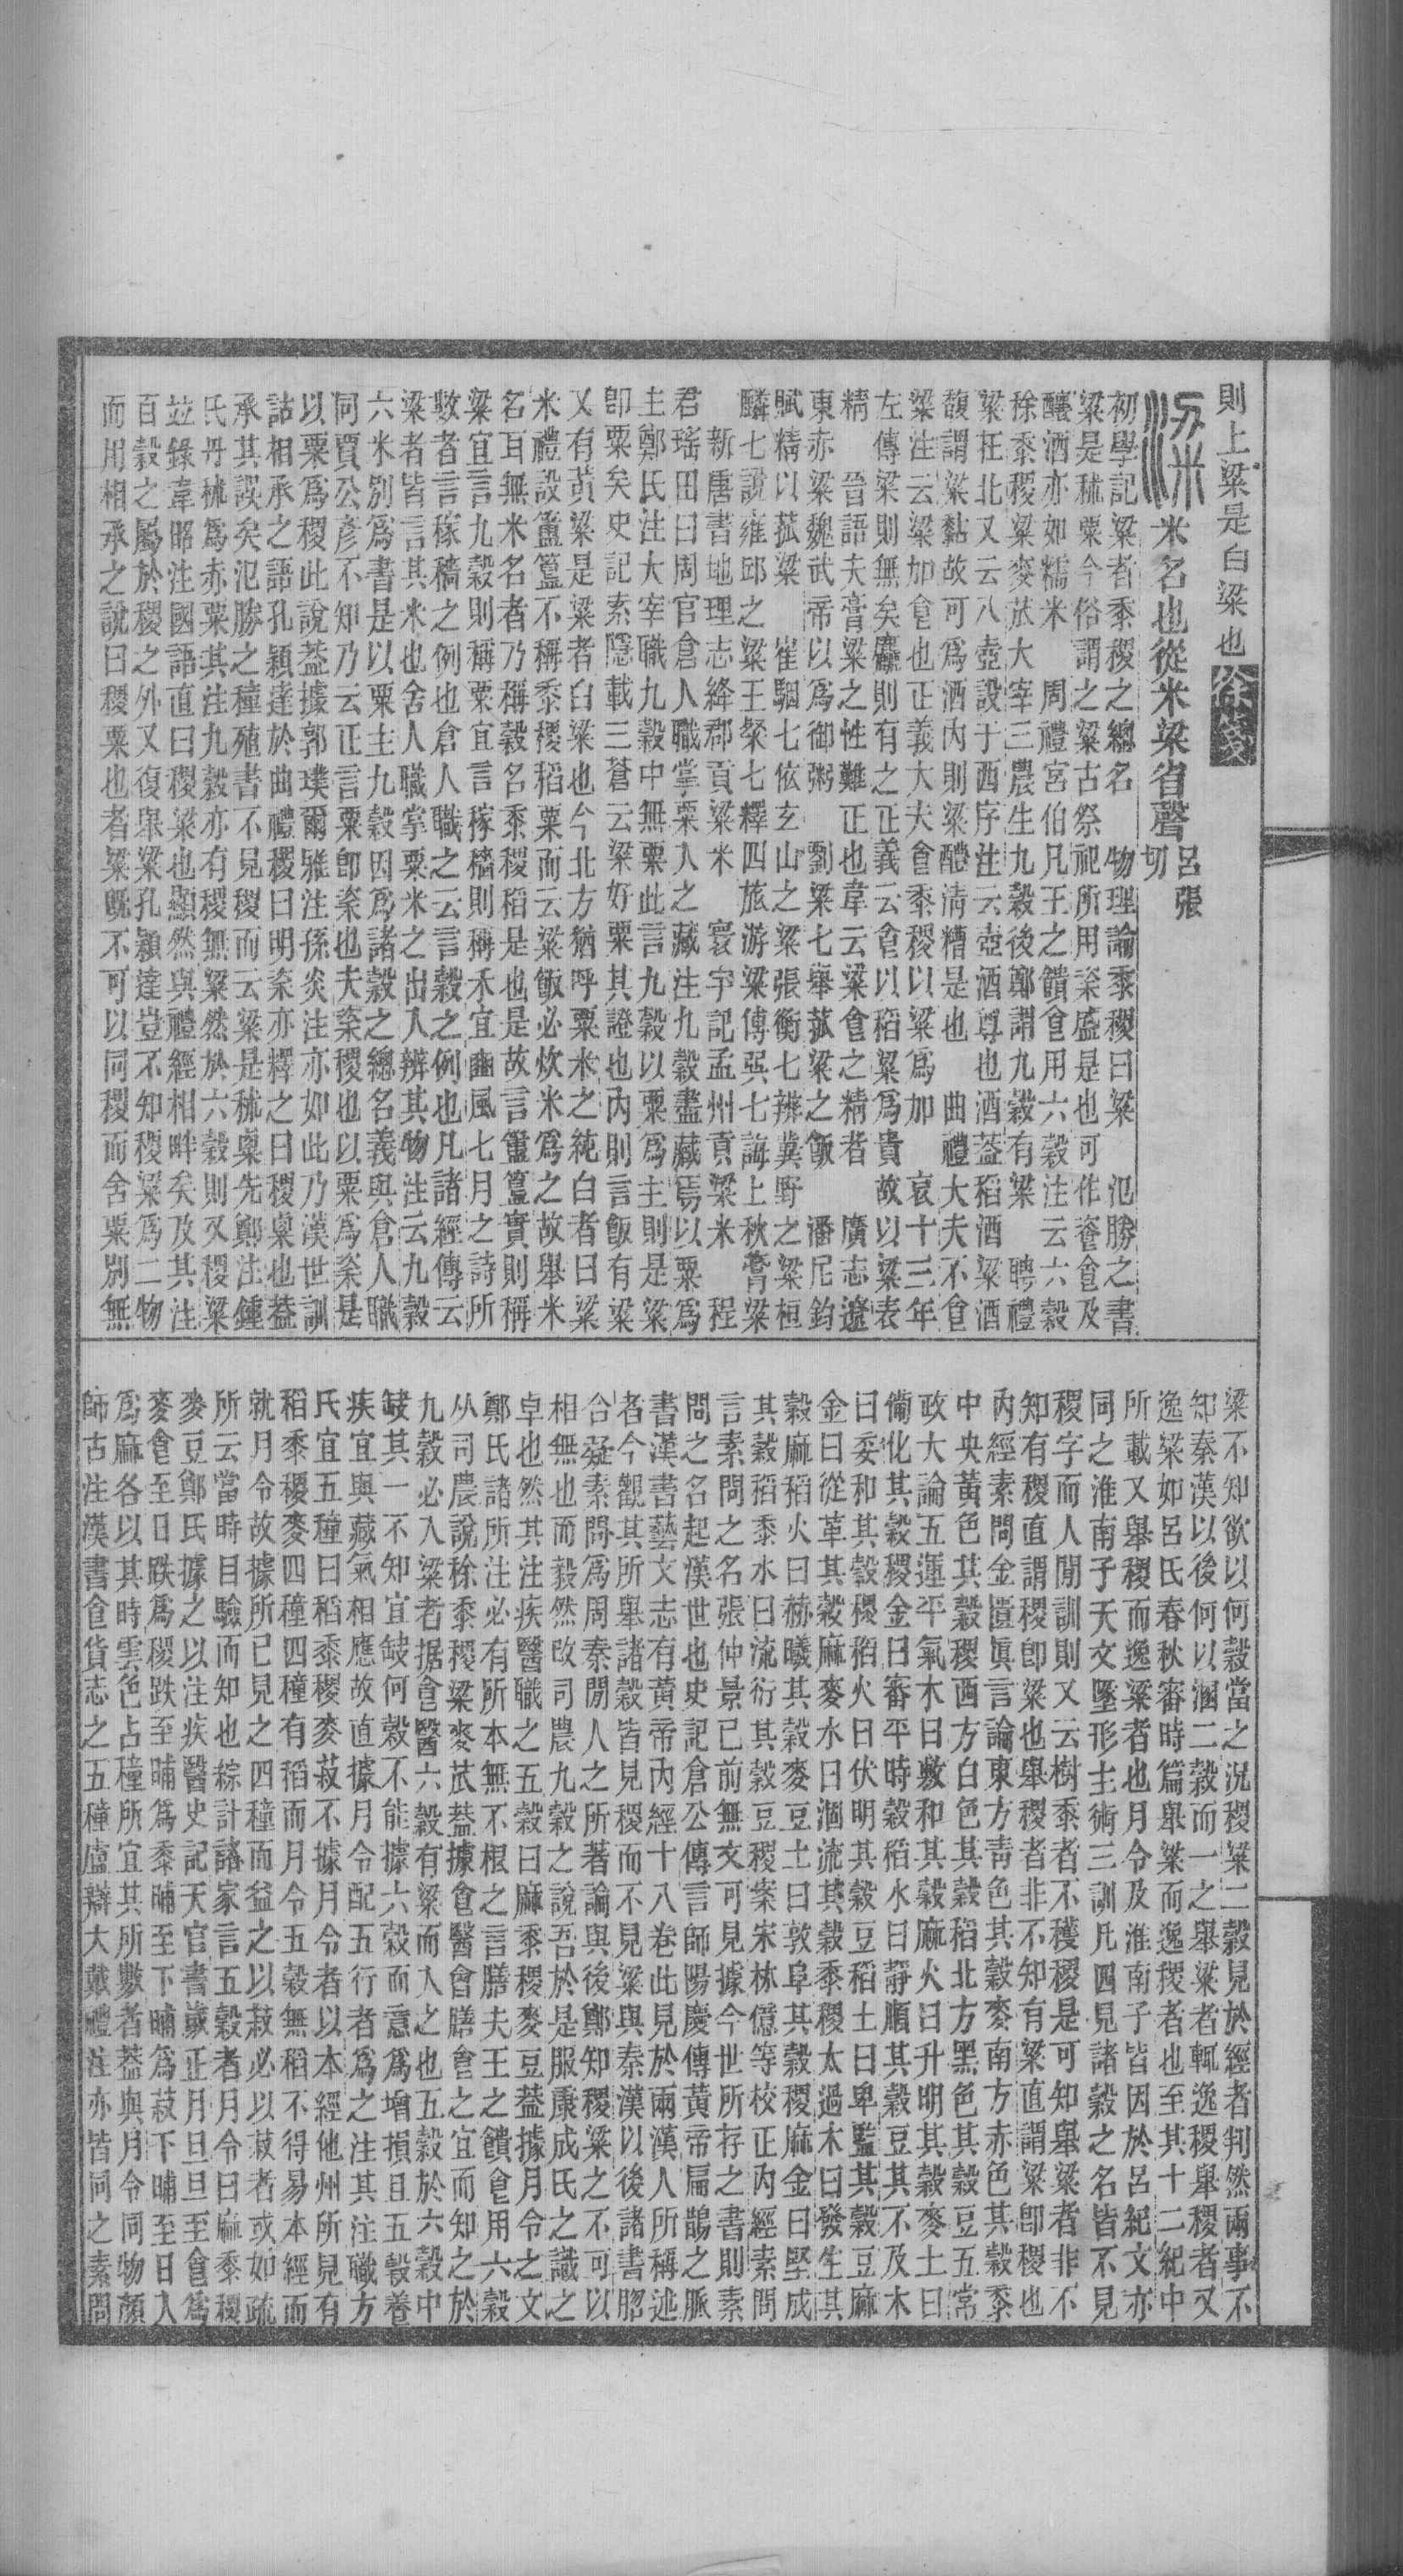 則上粱是白粱也徐箋
米名也從米梁省聲呂張切
初學記粱者黍稷之總名　物理論黍稷曰粱　氾勝之書
粱是秫粟今俗謂之粱古祭祀所用粢盛是也可作餈食及
釀酒亦如糯米　周禮宮伯凡王之饋食用六穀注云六穀
稌黍稷粱麥苽大宰三農生九穀後鄭謂九穀有粱　聘禮
粱在北又云八壺設于西序注云壺酒尊也酒葢稻酒粱酒
馥謂粱黏故可爲酒內則粱醴清糟是也　曲禮大夫不食
粱注云粱加食也正義大夫食黍稷以粱爲加　哀十三年
左傳粱則無矣麤則有之正義云食以稻粱爲貴故以粱表
精　晉語夫膏粱之性難正也韋云粱食之精者　廣志遼
東赤粱魏武帝以爲御粥　劉梁七舉菰粱之飯　潘尼鈞
賦精以菰粱　崔駰七依玄山之粱張衡七辨冀野之粱桓
麟七說雍邱之粱王粲七釋四旅游粱傅巽七誨上秋膏粱
新唐書地理志絳郡貢粱米　寰宇記孟州貢粱米　程
君瑤田曰周官倉人職掌粟入之藏注九穀盡藏焉以粟爲
主鄭氏注大宰職九穀中無粟此言九穀以粟爲主則是粱
即粟矣史記索隱載三蒼云粱好粟其證也內則言飯有粱
又有黃粱是粱者白粱也今北方猶呼粟米之純白者曰粱
米禮設簠簋不稱黍稷稻粟而云粱飯必炊米爲之故舉米
名耳無米名者乃稱穀名黍稷稻是也是故言簠簋實則稱
粱宜言九穀則稱粟宜言稼穡則稱禾宜豳風七月之詩所
數者言稼穡之例也倉人職之云言穀之例也凡諸經傳云
粱者皆言其米也舍人職掌粟米之出入辨其物注云九穀
六米別爲書是以粟主九穀因爲諸穀之總名義與倉人職
同賈公彥不知乃云正言粟即粢也夫粢稷也以粟爲粢是
以粟爲稷此說葢據郭璞爾雅注孫炎注亦如此乃漢世訓
詁相承之語孔穎達於曲禮稷曰明粢亦釋之曰稷粟也葢
承其誤矣氾勝之種殖書不見稷而云粱是秫粟先鄭注鍾
氏丹秫爲赤粟其注九穀亦有稷無粱然於六穀則又稷粱
竝錄韋昭注國語直曰稷粱也顯然與禮經相畔矣及其注
百穀之屬於稷之外又復舉粱孔穎達豈不知稷粱爲二物
而用相承之說曰稷粟也者粱旣不可以同稷而舍粟別無
粱不知欲以何穀當之況稷粱二穀見於經者判然兩事不
知秦漢以後何以溷二穀而一之舉粱者輒逸稷舉稷者又
逸粱如呂氏春秋審時篇舉粱而逸稷者也至其十二紀中
所載又舉稷而逸粱者也月令及淮南子皆因於呂紀文亦
同之淮南子天文墬形主術三訓凡四見諸穀之名皆不見
稷字而人閒訓則又云樹黍者不穫稷是可知舉粱者非不
知有稷直謂稷即粱也舉稷者非不知有粱直謂粱卽稷也
內經素問金匱眞言論東方青色其穀麥南方赤色其穀黍
中央黃色其穀稷西方白色其穀稻北方黑色其穀豆五常
政大論五運平氣木曰敷和其穀麻火曰升明其穀麥土曰
備化其穀稷金曰審平其穀稻水曰靜順其穀豆其不及木
曰委和其穀稷稻火曰伏明其穀豆稻土曰卑監其穀豆麻
金曰從革其穀麻麥水曰涸流其穀黍稷太過木曰發生其
穀麻稻火曰赫曦其穀麥豆土曰敦阜其穀稷麻金曰堅成
其穀稻黍水曰流衍其穀豆稷案宋林億等校正內經素問
言素問之名張仲景已前無文可見據今世所存之書則素
問之名起漢世也史記倉公傳言師陽慶傳黃帝扁鵲之脈
書漢書藝文志有黃帝內經十八卷此見於兩漢人所稱述
者今觀其所舉諸穀皆見稷而不見粱與秦漢以後諸書脗
合疑素問爲周秦閒人之所著論與後鄭知稷粱之不可以
相無也而毅然改司農九穀之說吾於是服康成氏之識之
卓也然其注疾醫職之五穀曰麻黍稷麥豆葢據月令之文
鄭氏諸所注必有所本無不根之言膳夫王之饋食用六穀
从司農說稌黍稷粱麥苽葢據食醫會膳食之宜而知之於
九穀必入粱者据食醫六穀有粱而入之也五穀於六穀中
缺其一不知宜缺何穀不能據六穀而意爲增損且五穀養
疾宜與藏氣相應故直據月令配五行者爲之注其注職方
氏宜五種曰稻黍稷麥菽不據月令者以本經他州所見有
稻黍稷麥四種四種有稻而月令五穀無稻不得易本經而
就月令故據所已見之四種而益之以菽必以菽者或如疏
所云當時目驗而知也綜計諸家言五穀者月令曰麻黍稷
麥豆鄭氏據之以注疾醫史記天官書歲正月旦旦至食爲
麥食至日昳爲稷昳至晡爲黍晡至下晡爲菽下晡至日入
爲麻各以其時雲色占種所宜其所數者葢與月令同物顏
師古注漢書食貨志之五種盧辯大戴禮注亦皆同之素問